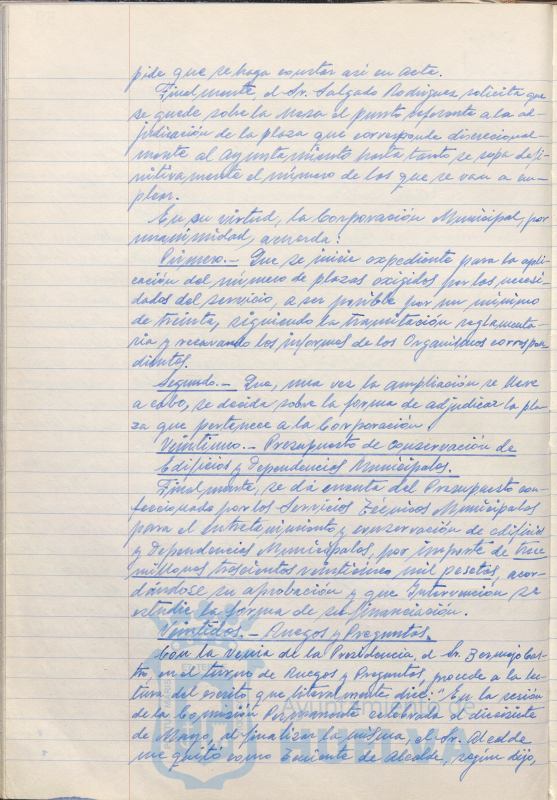 pide que se haga constar así en Acta.
Finalmente, el Sr. Salgado Rodríguez, solicita que
se quede sobre la Mesa el punto referente a la ad-
judicación de la plaza que corresponde discrecional-
mente al Ayuntamiento hasta tanto se sepa defi-
nitivamente el número de las que se van a em-
plear.
En su virtud, la Corporación Municipal, por
unanimidad, acuerda:
Primero.- Que se inicie expediente para la apli-
cación del número de plazas exigidos por las necesi-
dades del servicio, a ser posible por un mínimo
de treinta, siguiendo la tramitación reglamenta-
ria y recavando los informes de los Organismos correspon-
dientes.
Segundo.- Que, una vez la ampliación se lleve
a cabo, se decida sobre la forma de adjudicar la pla-
za que pertenece a la Corporación.
Veintiuno.- Presupuesto de conservación de
Edificios y Dependencias Municipales.
Finalmente, se dá cuenta del Presupuesto con-
feccionado por los Servicios Técnicos Municipales
para el entretenimiento y conservación de edificios
y Dependencias Municipales, por importe de trece
millones trescientas veinticinco mil pesetas, acor-
dándose su aprobación y que Intervención se
estudie la forma de su financiación.
Veintidos.- Ruegos y Preguntas.
Con la Venia de la Presidencia, el Sr. Bermejo Cas-
tro, en el turno de Ruegos y Preguntas, procede a la lec-
tura del escrito, que literalmente dice: "En la sesión
de la Comisión Permanente celebrada el diecisiete
de Mayo, al finalizar la misma, el Sr. Alcalde
me quitó como Teniente de Alcalde, según dijo,
Ayuntamiento de
HUELVA